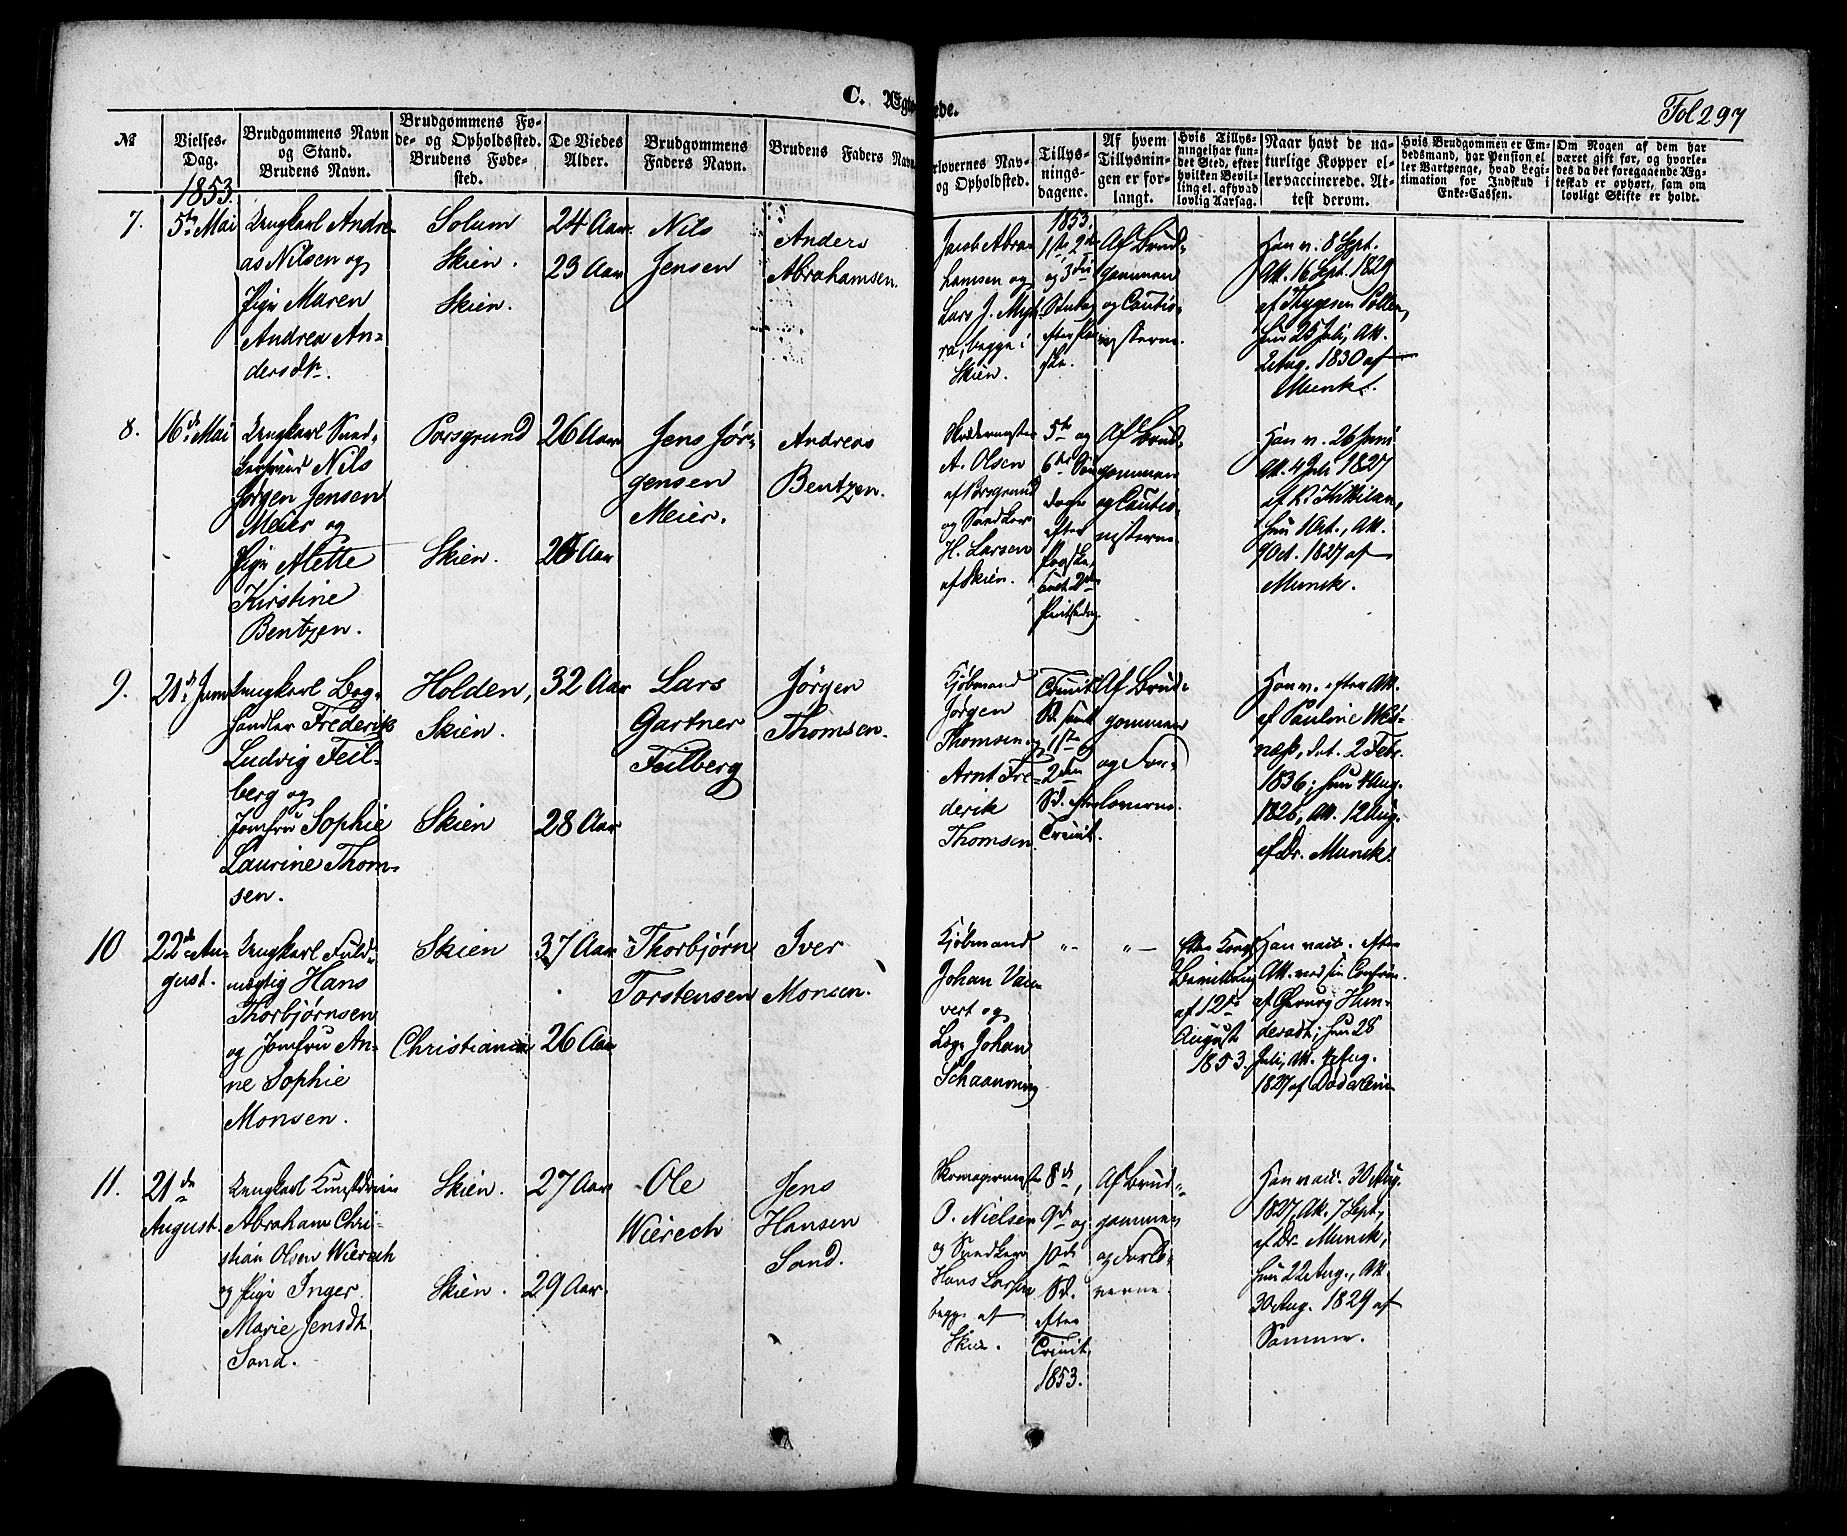 C. Ægte
ede.
Fol 297
№
Vielses-
Dag.
Brudgommens Navn
og Stand.
Brudens Navn.
Brudgommens Fø-
de- og Opholdssted.
Brudens Føde-
sted.
De Viedes
Alder.
Brudgommens
Faders Navn.
Brudens Faders Navn
orlovernes Nav-
og Opholdsted.
Tillys-
nings-
dagene.
Af hvem
Tillysnin-
gen er for-
langt.
Hvis Tillys-
ningel har fun-
det Sted, efter
hvilken Bevil-
ling el. af hvad
lovlig Aarsag.
Naar havt de na-
turlige Kopper el-
ler vaccinerede. At-
test derom.
Hvis Brudgommen er Em-
bedsmand, har Pension el
ler Vartpenge, hvad Legi-
timation for Indskud i
Enke-Cassen.
Om Nogen af dem har
været gift før, og hvorle-
des da det foregaaende Æg-
teskad er ophørt, sam om
lovligt Skifte er holdt.
1853.
7.
5te Mai
Ungkarl Andre-
as Nilsen og
Pige Maren
Andrea An-
dersdtr.
Solum
Skien.
Skien.
24 Aar.
23 Aar
Nils
Jensen
Anders
Abrahamsen.
Jacob Abra-
hamsen og
Lars J. Myh-
ra, begge i
Skien.
1853.
1ste 2den
og 3die
efter
Af Brud-
gommen
og Cautio-
nisterne.
Han v. 8 Sept.
Att. 16 Sept. 1829
af Thygesen
hun 25 Juli, Att.
2 Aug. 1830 af
Munk.
8.
16de Mai
Ungkarl
Nils
Jørgen Jensen
Meier og
Pige Alette
Kirstine
Bentzen.
Porsgrund
Skien.
26 Aar
26 Aar
Jens Jør-
gensen
Meier.
Andreas
Bentzen.
A. Olsen
af Porsgrund
og Snedker
H. Larsen
af Skien.
5te og
6te Søn-
dage
efter
Paaske,
samt 2den
Pintsedag.
Af Brud-
gommen
og Cautio-
nisterne.
Han v. 26 Juni
Att. 4 Juli 1827
af
hun 1 Oct., Att.
9 Oct. 1827 af
Munck.
9.
21de Juni
Ungkarl Bog-
handler Frederik
Ludvig Feil-
berg og
Jomfru Sophie
Laurine Thom-
sen.
Holden,
Skien.
Skien
32 Aar
28 Aar
Lars
Gartner
Feilberg
Jørgen
Thomsen.
Kjøbmand
Jørgen
Thomsen og
Arnt Fre-
derik
Thomsen.
Trinit.
Sd. samt
1ste og
2den
Sd. efter
Trinit.
Af Brud-
gommen
og For-
loverne.
Han v. efter Att.
af Pauline Wes-
næss, dat. 2 Febr.
1836; hun 4 Aug.
1826, Att. 12 Aug.
af Dr. Munck.
10
22de Au-
gust.
Ungkarl Fuld-
mægtig Hans
Thorbjørnsen
og Jomfru An-
ne Sophie
Monsen.
Skien
Christiania
37 Aar
26 Aar
Thorbjørn
Torstensen
Iver
Monsen.
Kjøbmand
Johan Vau-
vert og
Læge Johan
Schaanning
"-
"-
efter Kongl.
Bevilling
af 12te
August
1853.
Han vacc. efter
Att. ved sin Confirm.
af
hun 28
Juli, Att. 4 Aug.
1827 af Døderlein
11.
21de
August.
Ungkarl Kunstdreier
Abraham Chri-
stian Olsen Wierech
og Pige Inger
Marie Jensdtr.
Sand.
Skien.
Skien.
27 Aar
29 Aar.
Ole
Wierech
Jens
Hansen
Sand.
Skomagermester
O. Nielsen
og Snedker
Hans Larsen
begge af
Skien.
8de,
9de og
10de
Sd.
efter
Trinit.
1853.
Af Brud-
gommen
og Forlo-
verne.
Han vacc. 30 Aug.
1827, Att. 7 Sept.
af Dr. Munck,
hun 22 Aug., Att.
30 Aug. 1829 af
Sommer.